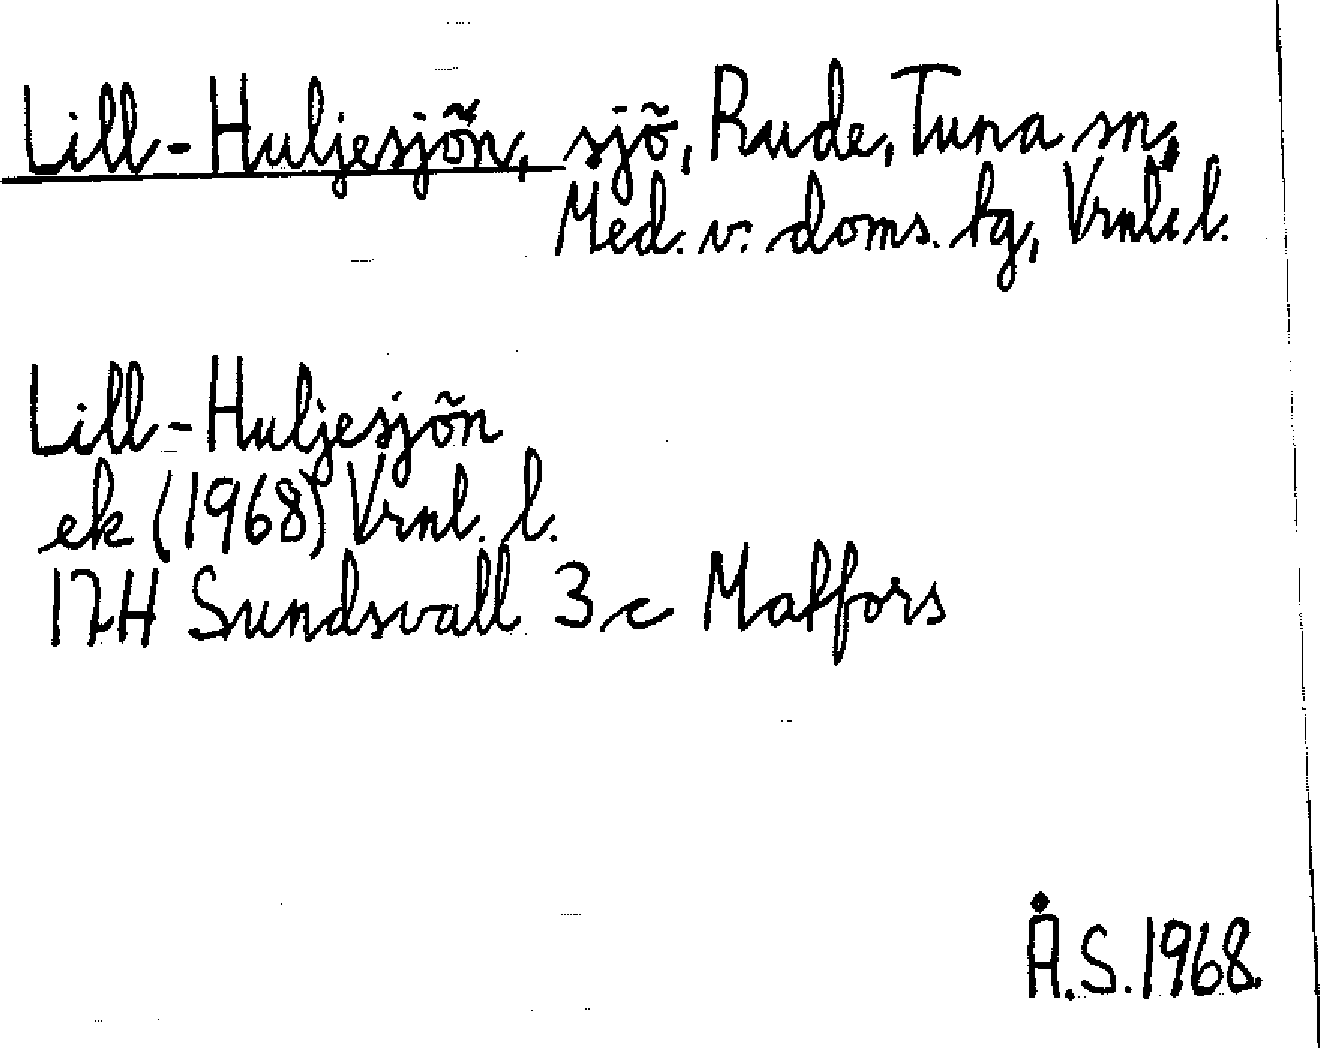 Lill-Huljesjön, sjö, Rude, Tuna sn,
Med. v. doms. tg, Vrnl. l.
Lill-Huljesjön
ek (1968) Vrnl. l.
17H Sundsvall 3 c Matfors
Å.S. 1968.